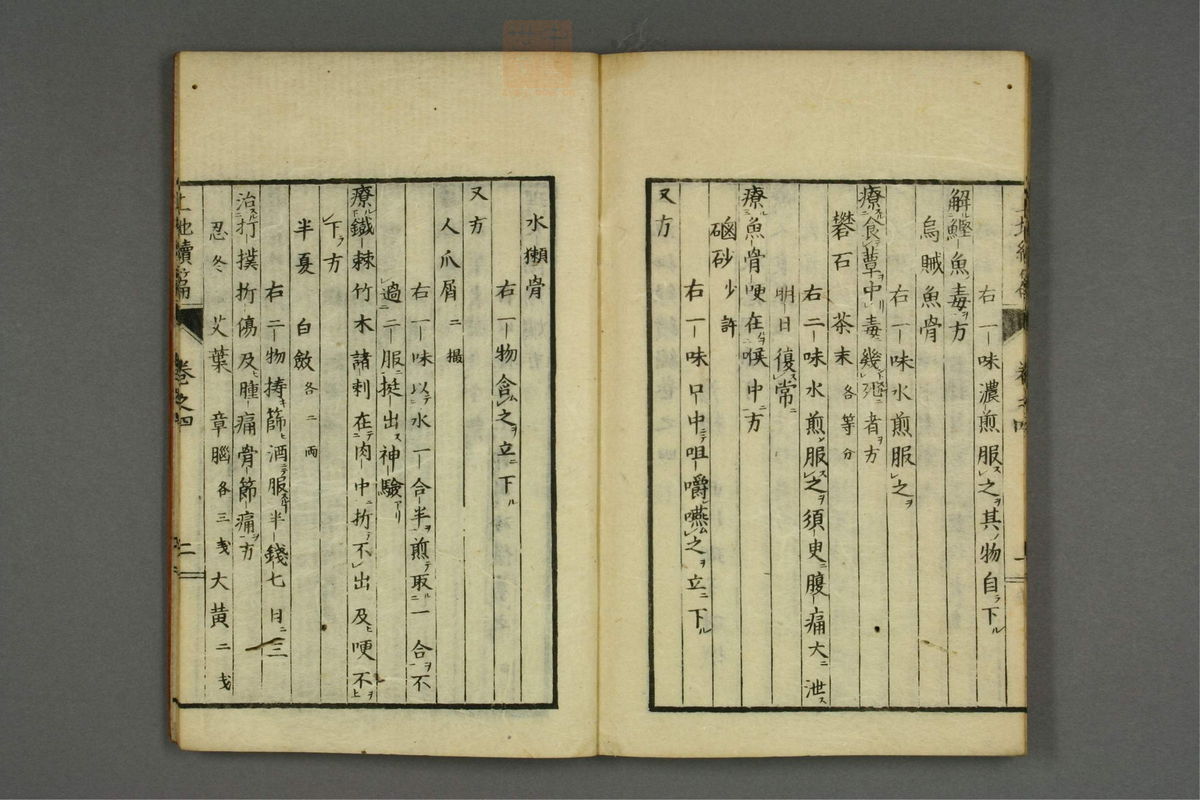 右一味濃煎服之其物自下
解鰹魚毒方
烏賊魚骨
右一味水煎服之
療食蕈中毒幾死者方
礬石 茶末各等分
右二味水煎服之須臾腹痛大泄
明日復常
療魚骨哽在喉中方
磠砂少許
右一味口中咀嚼嚥之立下
又方
水獺骨
右一物含之立下
又方
人爪屑二撮
右一味以水一合半煎取一合不
過二服挺出神驗
療鐵棘竹木諸刺在肉中折不出及哽不
下方
半夏 白斂各二兩
右二物擣篩酒服半錢七日三
治打撲折傷及腫痛骨節痛方
忍冬 艾葉 章腦各三戔 大黃二戔
續篇 卷之四 二